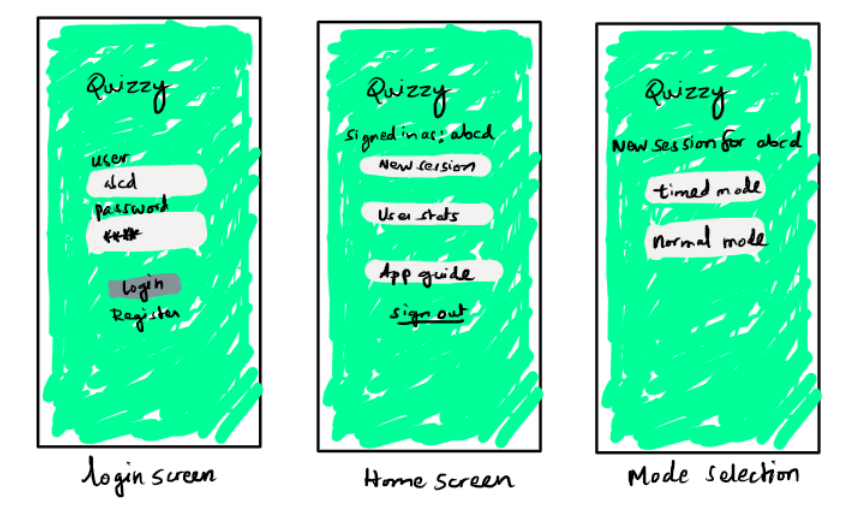 Quizzy
user
abcd
password
****
Login
Register
Login screen
Quizzy
signed in as: abcd
New session
User stats
App guide
sign out
Home Screen
Quizzy
New session for abcd
timed mode
normal mode
Mode Selection